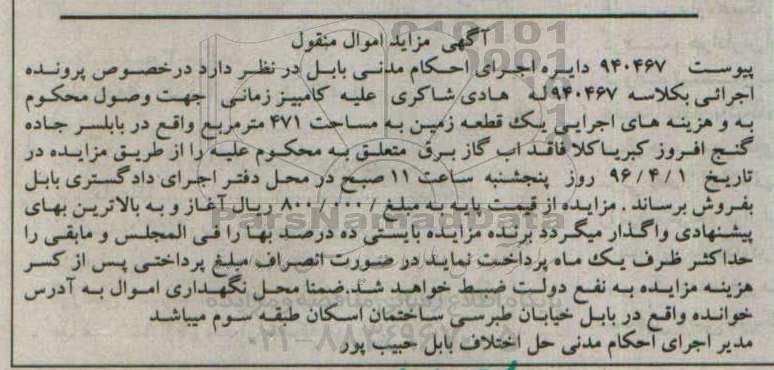 آگهی مزاید اموال منقول
پیوست ۹۴۰۴۶۷ دایره اجرای احکام مدنی بابل در نظر دارد درخصوص پرونده
اجرائی بکلاسه ۹۴۰۴۶۷ له هادی شاکری علیه کامبیز زمانی جهت وصول محکوم
به و هزینه های اجرایی یک قطعه زمین به مساحت ۴۷۱ مترمربع واقع در بابلسر جاده
گنج افروز کبریاکلا فاقد اب گاز برق متعلق به محکوم علیه را از طریق مزایده در
تاریخ ۹۶/۴/۱ روز پنجشنبه ساعت ۱۱ صبح در محل دفتر اجرای دادگستری بابل
بفروش برساند. مزایده از قیمت پایه به مبلغ ۸۰۰/۰۰۰/ ریال آغاز و به بالاترین بهای
پیشنهادی واگذار میگردد برنده مزایده بایستی ده درصد بها را فی المجلس و مابقی را
حداکثر ظرف یک ماه پرداخت نماید در صورت انصراف مبلغ پرداختی پس از کسر
هزینه مزایده به نفع دولت ضبط خواهد شد.ضمنا محل نگهداری اموال به آدرس
خوانده واقع در بابل خیابان طبرسی ساختمان اسکان طبقه سوم میباشد
مدیر اجرای احکام مدنی حل اختلاف بابل حبیب پور
ParsNamadData